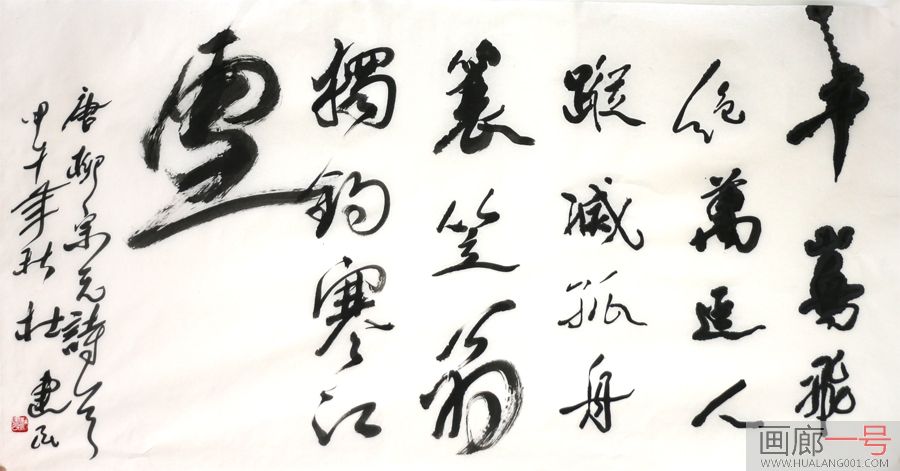 千山鳥飛
絕萬逕人
蹤滅孤舟
蓑笠翁
獨釣寒江
雪
唐柳宗元詩一首
甲午年秋杜
画廊一号
WWW.HUALANG001.COM